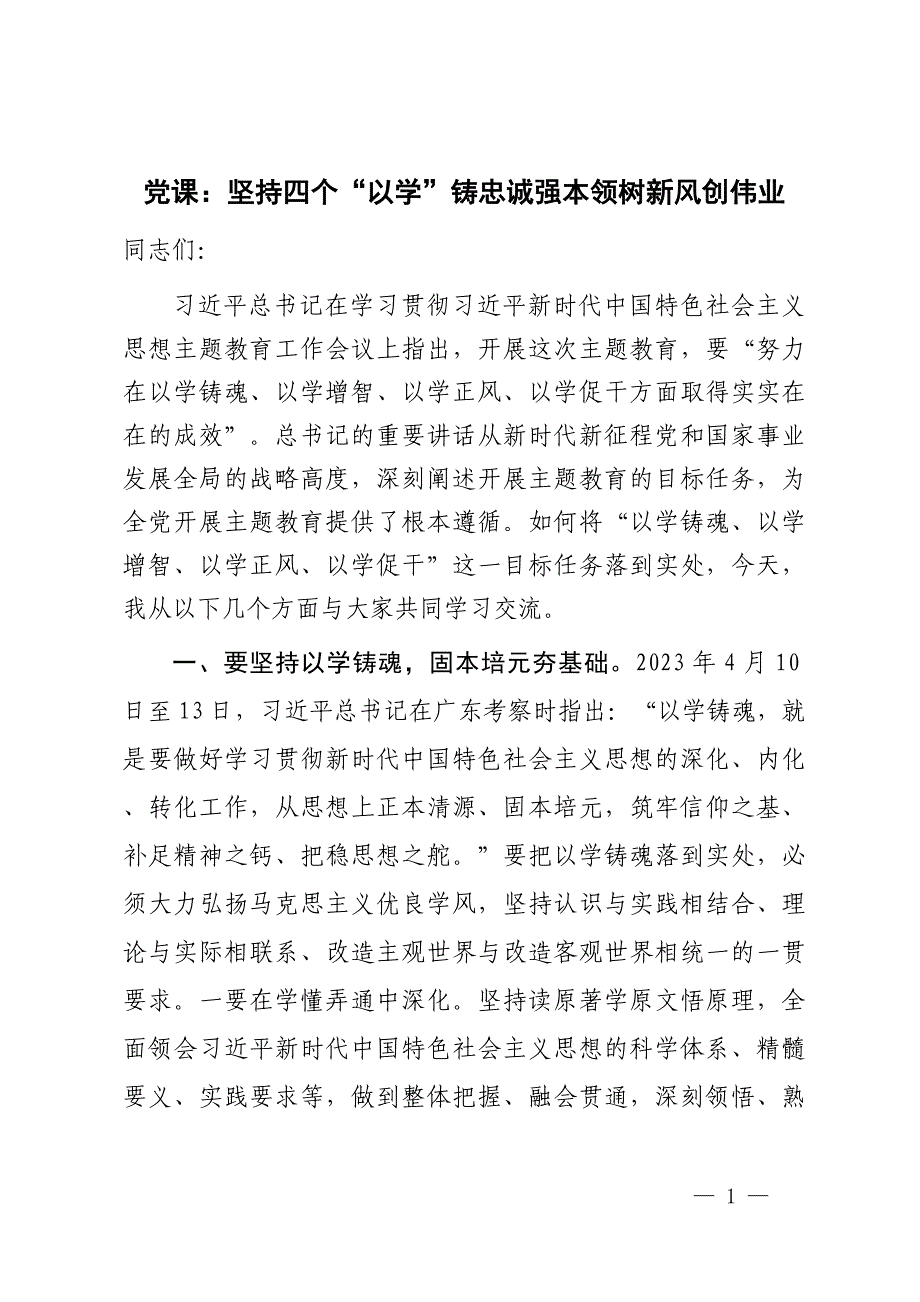 党课：坚持四个“以学”铸忠诚强本领树新风创伟业
同志们：
习近平总书记在学习贯彻习近平新时代中国特色社会主义
思想主题教育工作会议上指出，开展这次主题教育，要“努力
在以学铸魂、以学增智、以学正风、以学促干方面取得实实在
在的成效”。总书记的重要讲话从新时代新征程党和国家事业
发展全局的战略高度，深刻阐述开展主题教育的目标任务，为
全党开展主题教育提供了根本遵循。如何将“以学铸魂、以学
增智、以学正风、以学促干”这一目标任务落到实处，今天，
我从以下几个方面与大家共同学习交流。
一、要坚持以学铸魂，固本培元夯基础。2023 年 4 月 10
日至 13 日，习近平总书记在广东考察时指出：“以学铸魂，就
是要做好学习贯彻新时代中国特色社会主义思想的深化、内化
、转化工作，从思想上正本清源、固本培元，筑牢信仰之基、
补足精神之钙、把稳思想之舵。”要把以学铸魂落到实处，必
须大力弘扬马克思主义优良学风，坚持认识与实践相结合、理
论与实际相联系、改造主观世界与改造客观世界相统一的一贯
要求。一要在学懂弄通中深化。坚持读原著学原文悟原理，全
面领会习近平新时代中国特色社会主义思想的科学体系、精髓
要义、实践要求等，做到整体把握、融会贯通，深刻领悟、熟
— 1 —